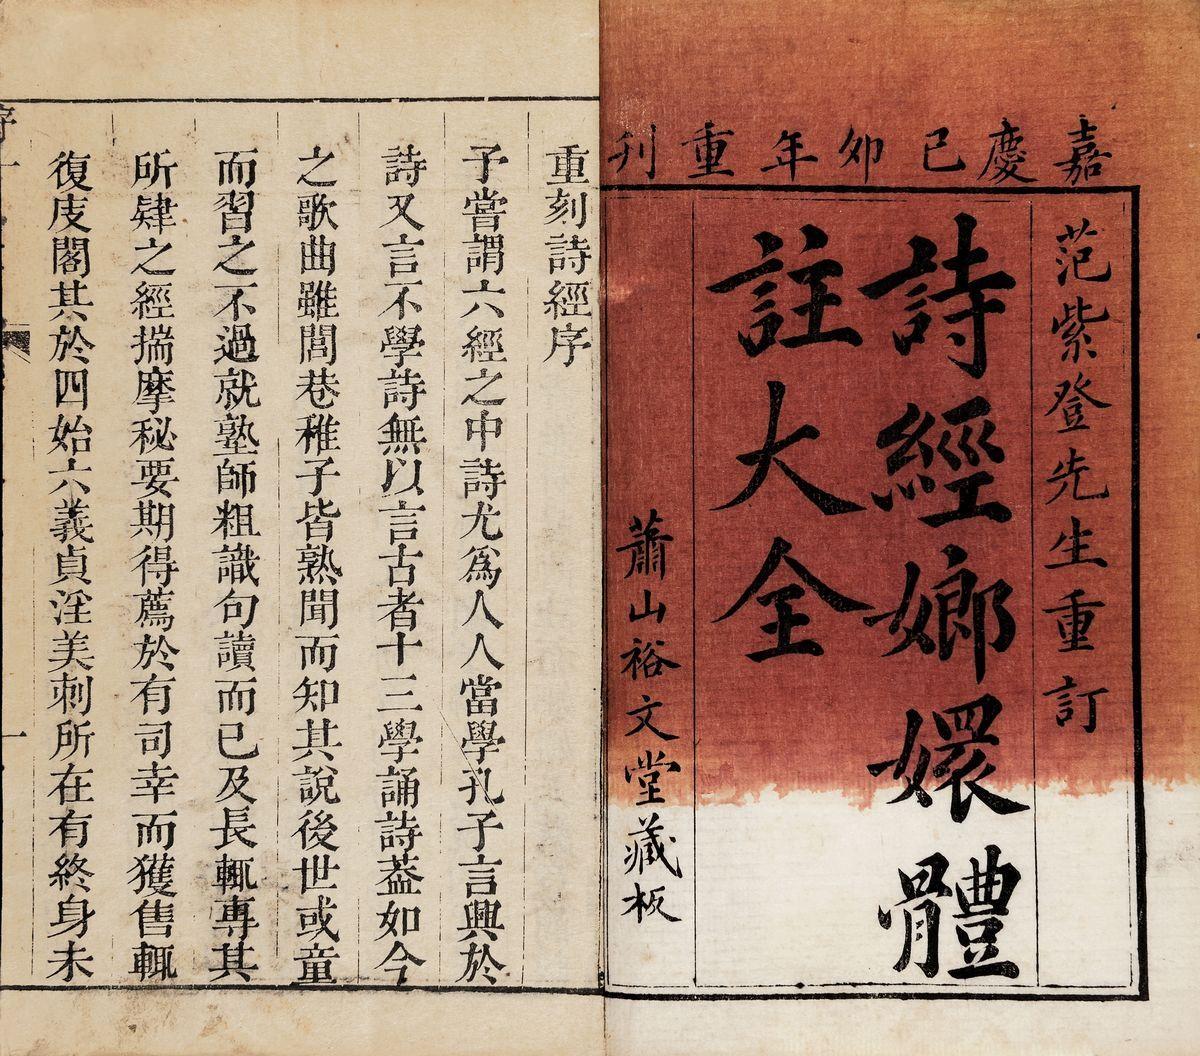 嘉慶己卯年重刊
范紫登先生重訂
詩經嫏嬛體
註大全
蕭山裕文堂藏板
重刻詩經序
予嘗謂六經之中詩尤為人人當學孔子言興於
詩又言不學詩無以言古者十三學誦詩葢如今
之歌曲雖閭巷稚子皆熟聞而知其說後世或童
而習之不過就塾師粗識句讀而已及長輒專其
所肄之經揣摩秘要期得薦於有司幸而獲售輒
復庋閣其於四始六義貞淫美刺所在有終身未
序
一
一